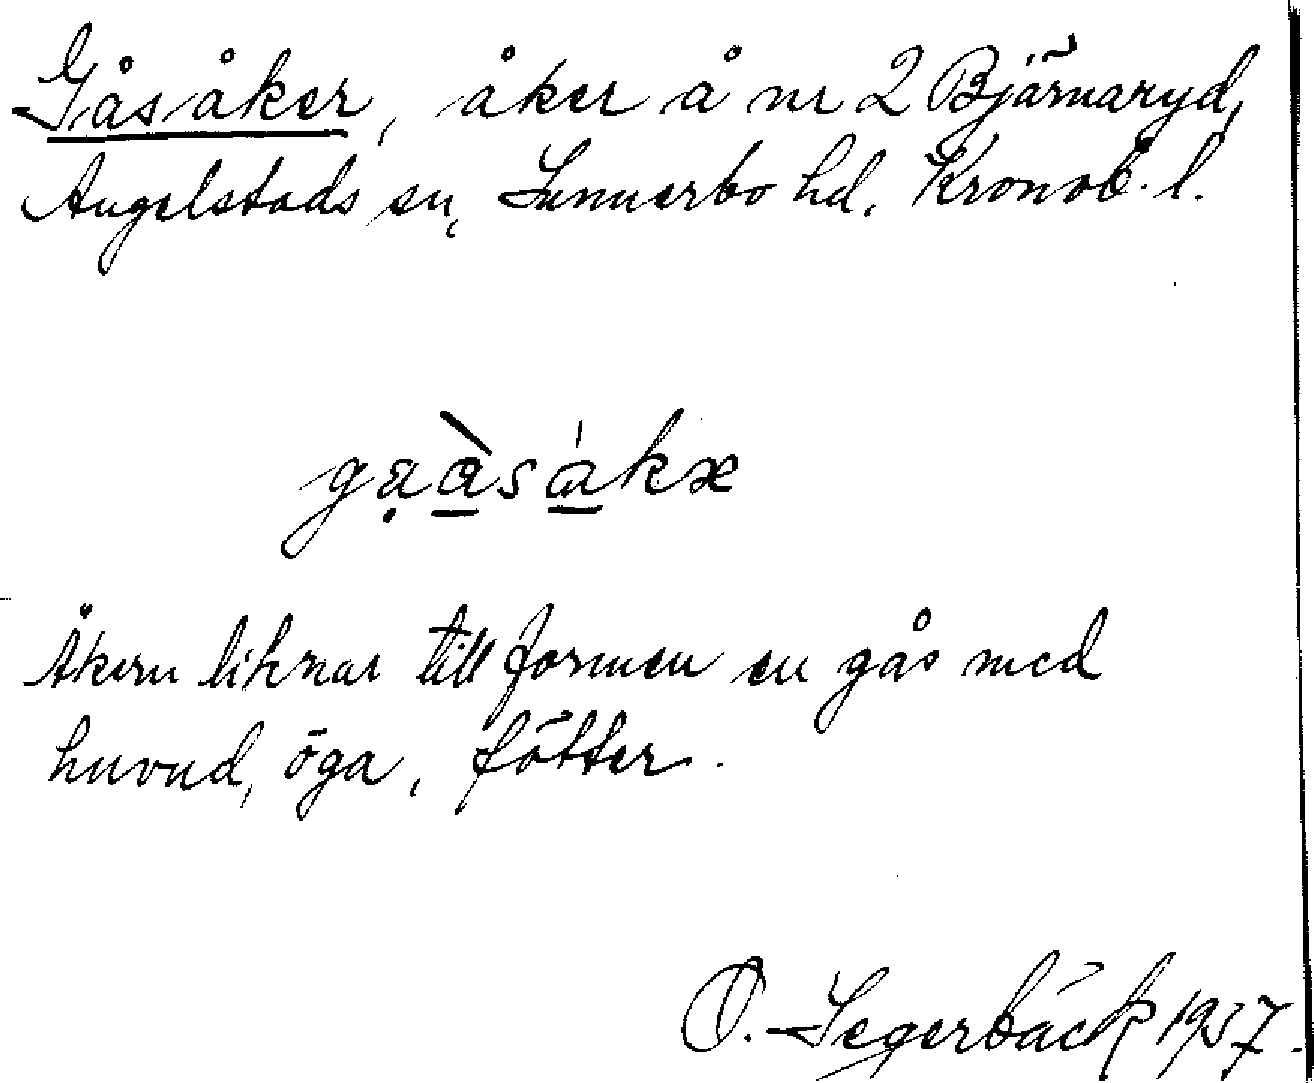 Gåsåker, åker å nr 2 Bjärnaryd,
Angelstads sn, Sunnerbo hd. Kronob. l.
gạà̱sa̱̍kæ
Åkern liknar till formen en gås med
huvud, öga, fötter.
O. Segerbäck 1937.